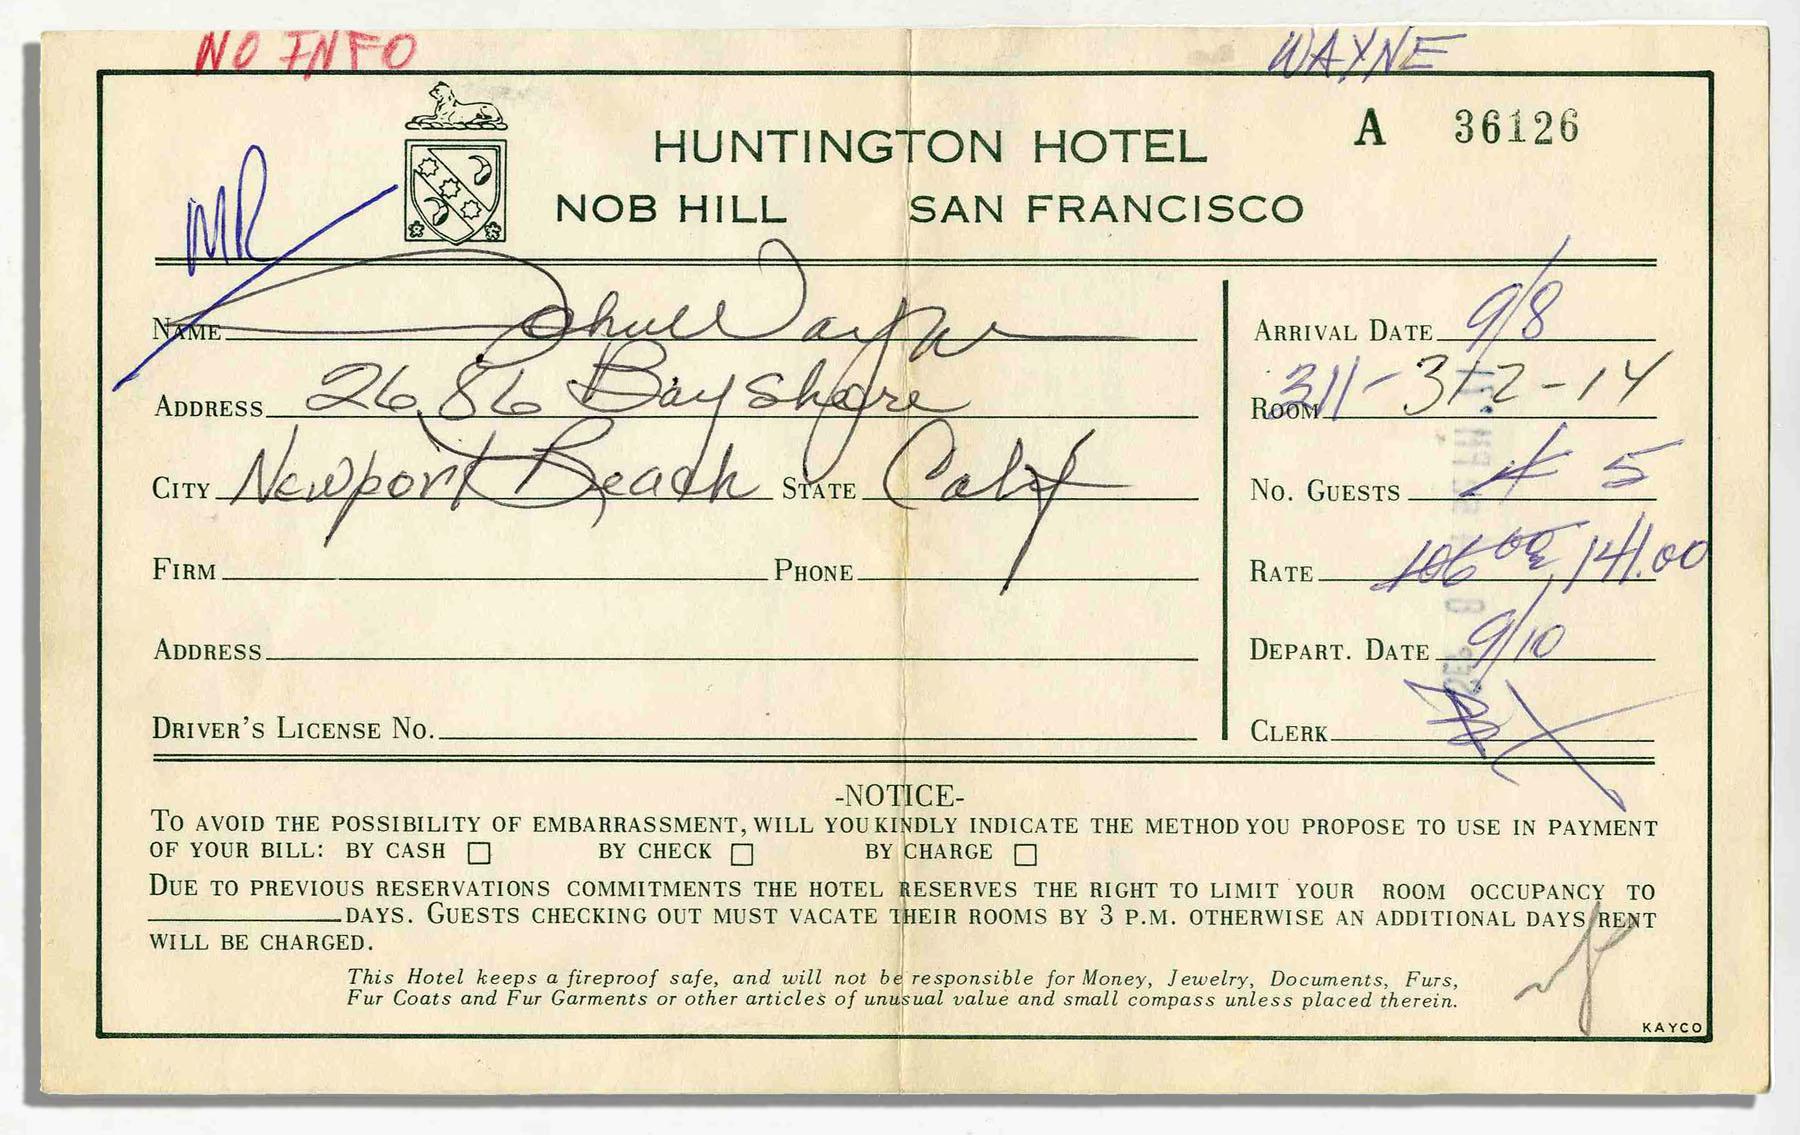 NO INFO
WAYNE
HUNTINGTON HOTEL
A 36126
NOB HILL SAN FRANCISCO
MR
NAME John Wayne
ARRIVAL DATE 9/8
ADDRESS 2686 Bayshore
ROOM 311-312-14
CITY Newport Beach STATE Calif
NO. GUESTS 4 5
FIRM PHONE
RATE 106 00 141.00
ADDRESS
DEPART. DATE 9/10
DRIVER'S LICENSE NO.
CLERK
-NOTICE-
TO AVOID THE POSSIBILITY OF EMBARRASSMENT, WILL YOU KINDLY INDICATE THE METHOD YOU PROPOSE TO USE IN PAYMENT
OF YOUR BILL: BY CASH ☐ BY CHECK ☐ BY CHARGE ☐
DUE TO PREVIOUS RESERVATIONS COMMITMENTS THE HOTEL RESERVES THE RIGHT TO LIMIT YOUR ROOM OCCUPANCY TO
DAYS. GUESTS CHECKING OUT MUST VACATE THEIR ROOMS BY 3 P.M. OTHERWISE AN ADDITIONAL DAYS RENT
WILL BE CHARGED.
This Hotel keeps a fireproof safe, and will not be responsible for Money, Jewelry, Documents, Furs,
Fur Coats and Fur Garments or other articles of unusual value and small compass unless placed therein.
KAYCO